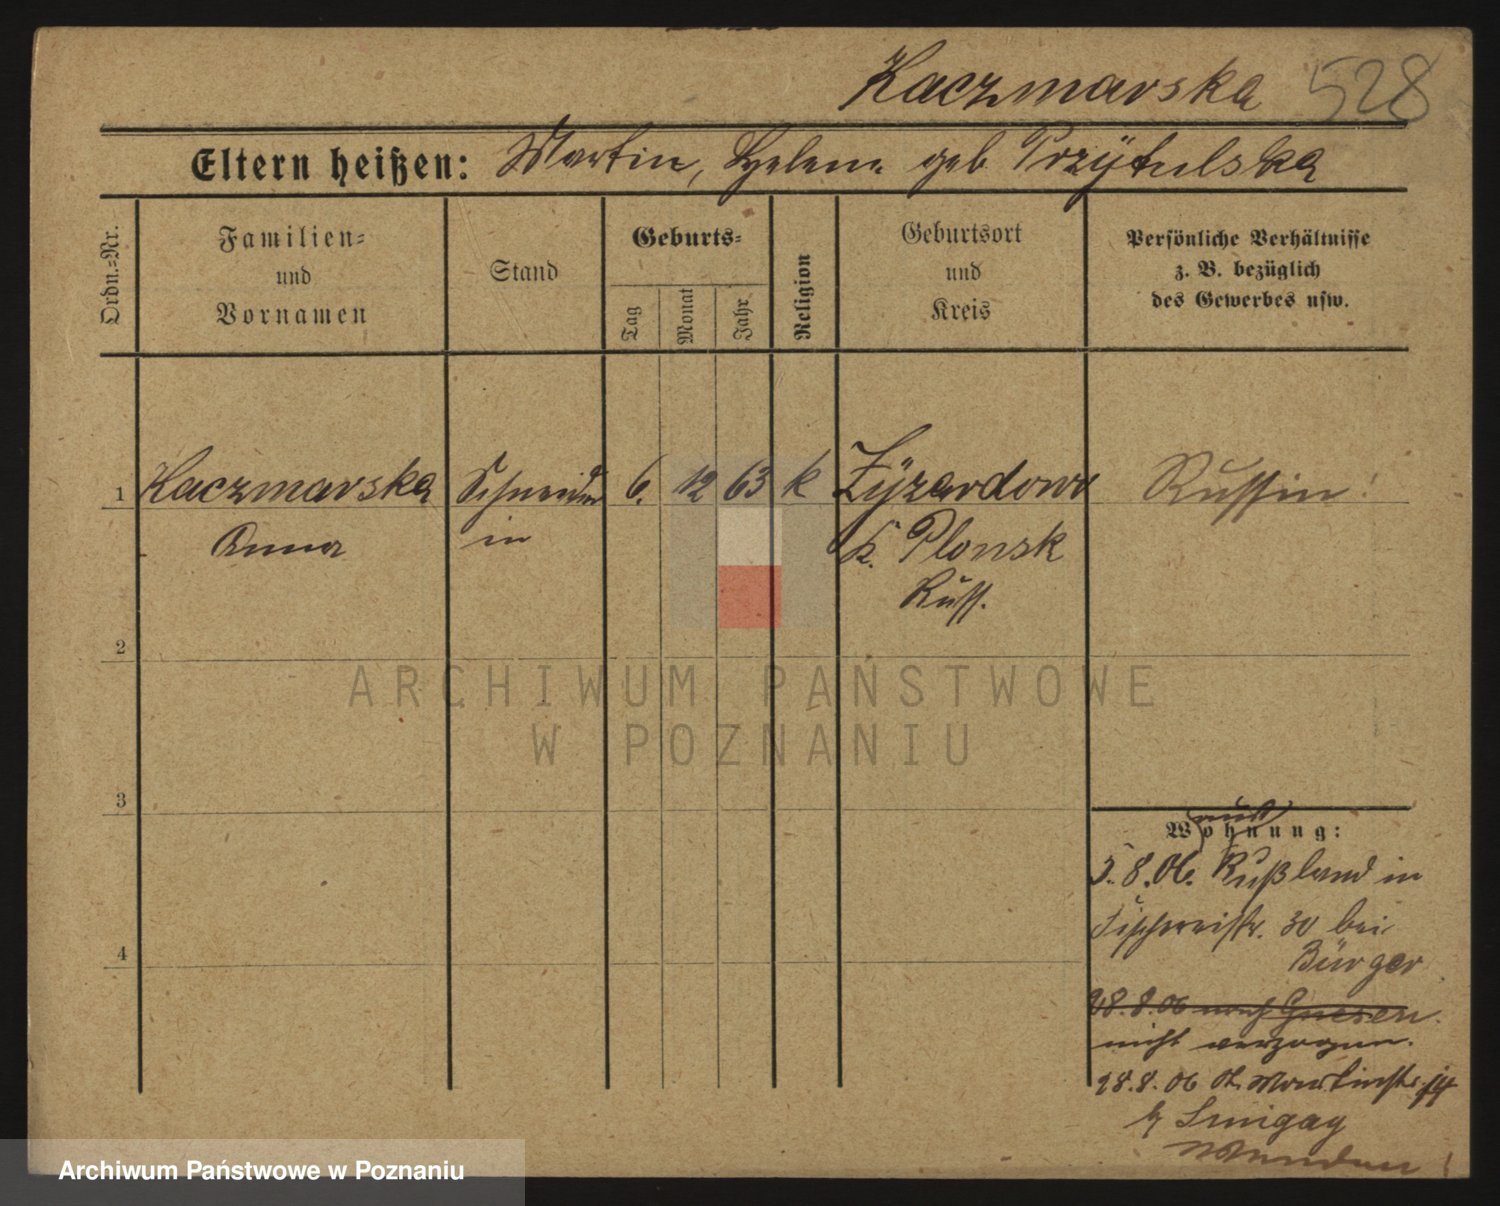 Kaczmarska 528
Eltern heißen: Martin, Helena geb Przÿtulska
Ordn.=Nr.
Familien=
und
Vornamen
Stand
Geburts=
Tag
Monat
Jahr
Religion
Geburtsort
und
Kreis
Persönliche Verhältnisse
z. B. bezüglich
des Gewerbes usw.
1 Kaczmarska Schneider 6. 12 63 k Zÿrardowo Russin!
Anna in K. Plonsk
Russ.
2
3
4
ARCHIWUM PAŃSTWOWE
W POZNANIU
Wohnung:
aus
5.8.06. Rußland in
Fischereistr. 30 bei
Bürger
28.8.06 nach Gnesen.
nicht verzogen.
28.8.06 St. Martinstr.
Archiwum Państwowe w Poznaniu